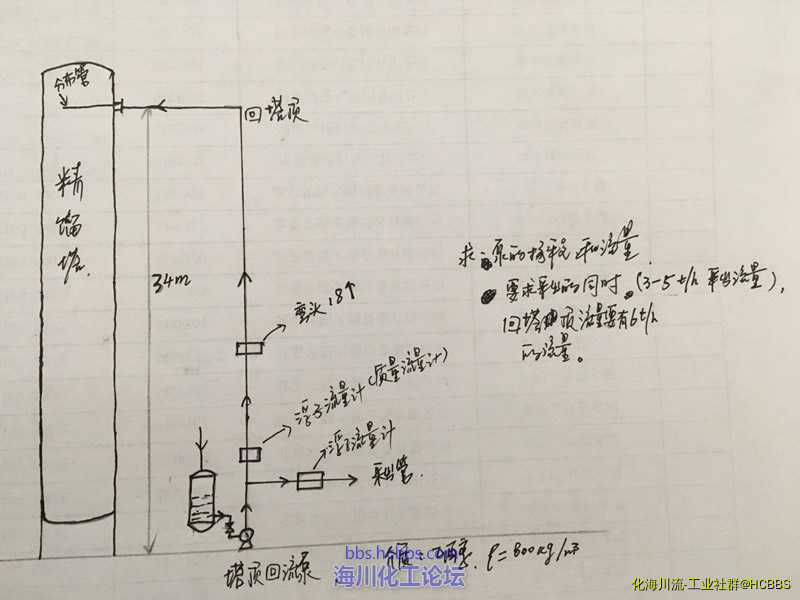 分布管
精馏塔
回塔顶
34m
弯头18个
浮子流量计(质量流量计)
浮子流量计
采出管.
塔顶回流泵
求:泵的扬程和流量.
要求采出的同时.(3-5t/h 采出流量),
回塔顶流量要有6t/h
的流量。
ρ=800kg/m³
bbs.hcbbs.com
海川化工论坛
化海川流-工业社群@HCBBS